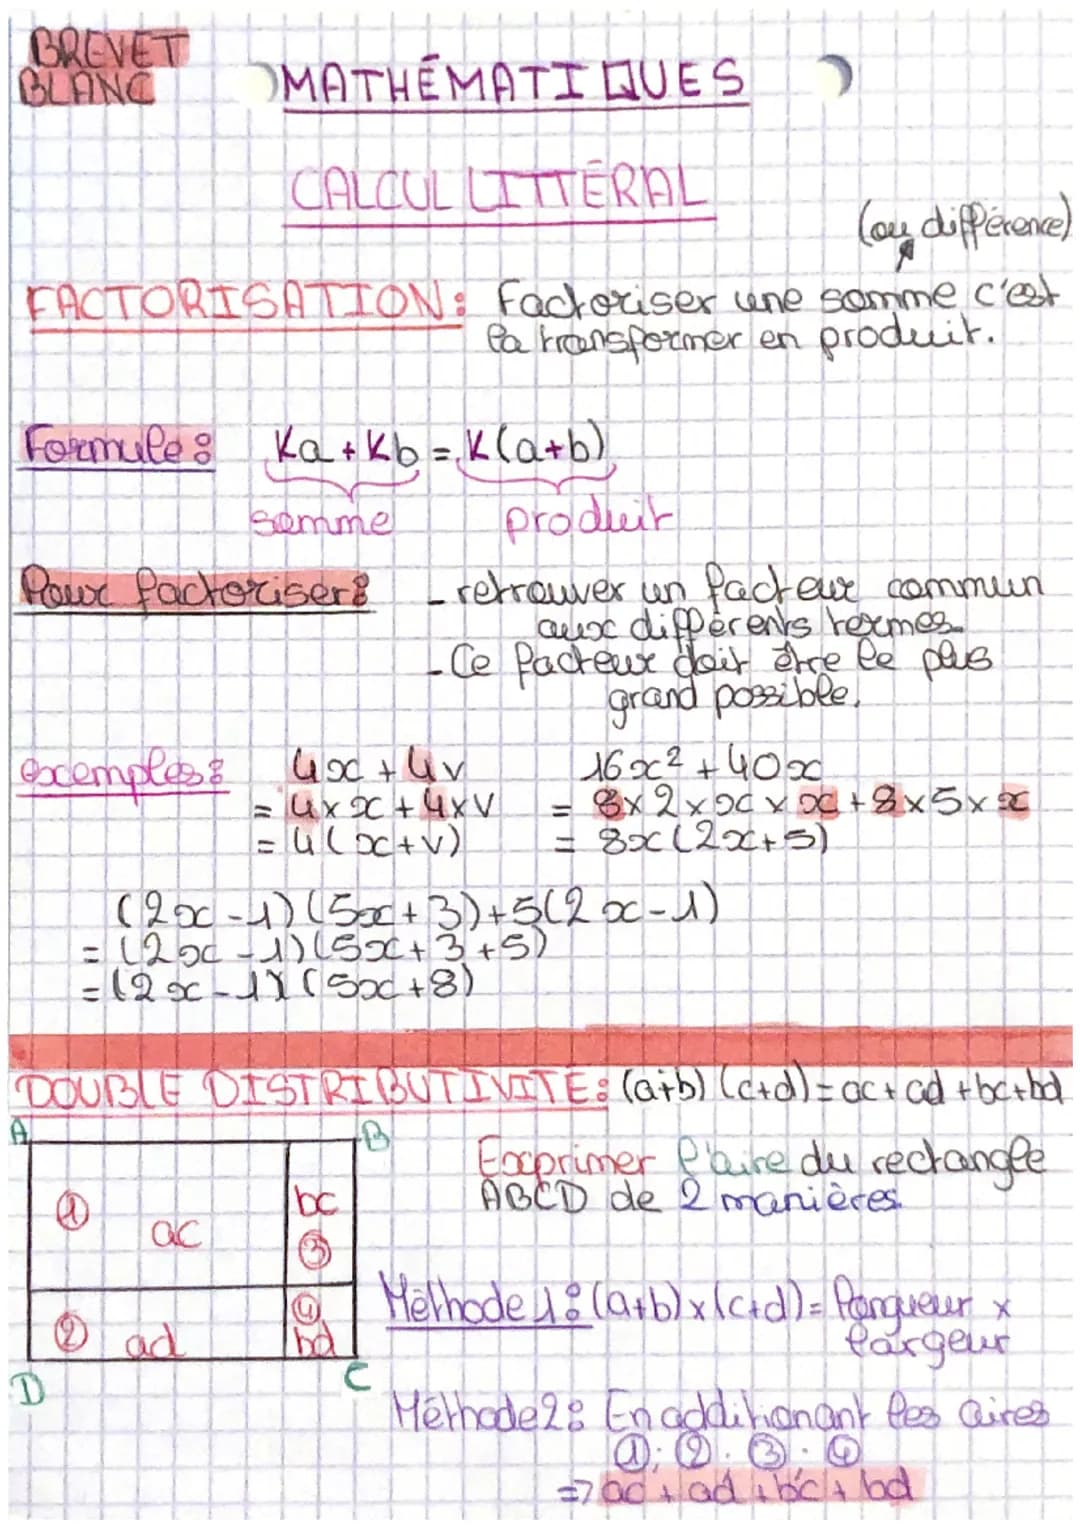 BREVET
BLANC
MATHÉMATIQUES
CALCUL LITTÉRAL
(ou différence)
FACTORISATION: Factoriser une somme c'est
la transformer en produit.
Formule: Ka + Kb = K(a+b)
somme produit
Pour factoriser: - retrouver un facteur commun
aux différents termes.
- Ce facteur doit être le plus
grand possible.
exemples: 4x + 4v 16x² + 40x
= 4×x + 4×v = 8×2×x×x + 8×5×x
= 4(x+v) = 8x(2x+5)
(2x-1)(5x+3)+5(2x-1)
= (2x-1)(5x+3+5)
= (2x-1)(5x+8)
DOUBLE DISTRIBUTIVITÉ: (a+b)(c+d) = ac+ad+bc+bd
A B
Exprimer l'aire du rectangle
ABCD de 2 manières.
① ac bc ③
② ad ④ bd
D C
Méthode 1: (a+b)×(c+d) = longueur ×
largeur
Méthode 2: En additionant les aires
①; ②; ③; ④
=> ac + ad + bc + bd